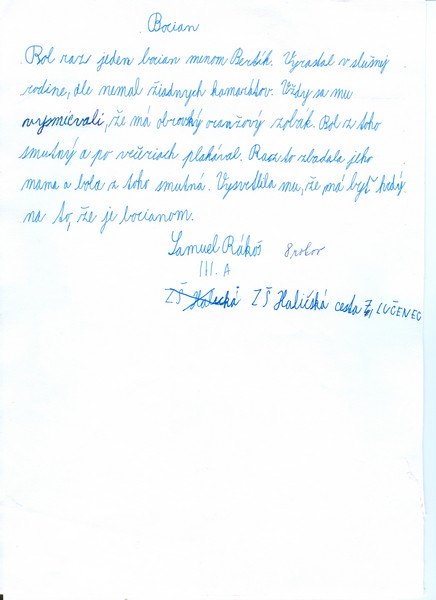 Bocian
Bol raz jeden bocian menom Bertík. Vyrastal v slušnej
rodine, ale nemal žiadnych kamarátov. Vždy sa mu
vysmievali, že má obrovský oranžový zobák. Bol z toho
smutný a po večeriach plakával. Raz to zbadala jeho
mama a bola z toho smutná. Vysvetlila mu, že má byť hrdý
na to, že je bocianom.
Samuel Rákoš 8 rokov
III. A
ZŠ ZŠ Haličská cesta 7, LUČENEC